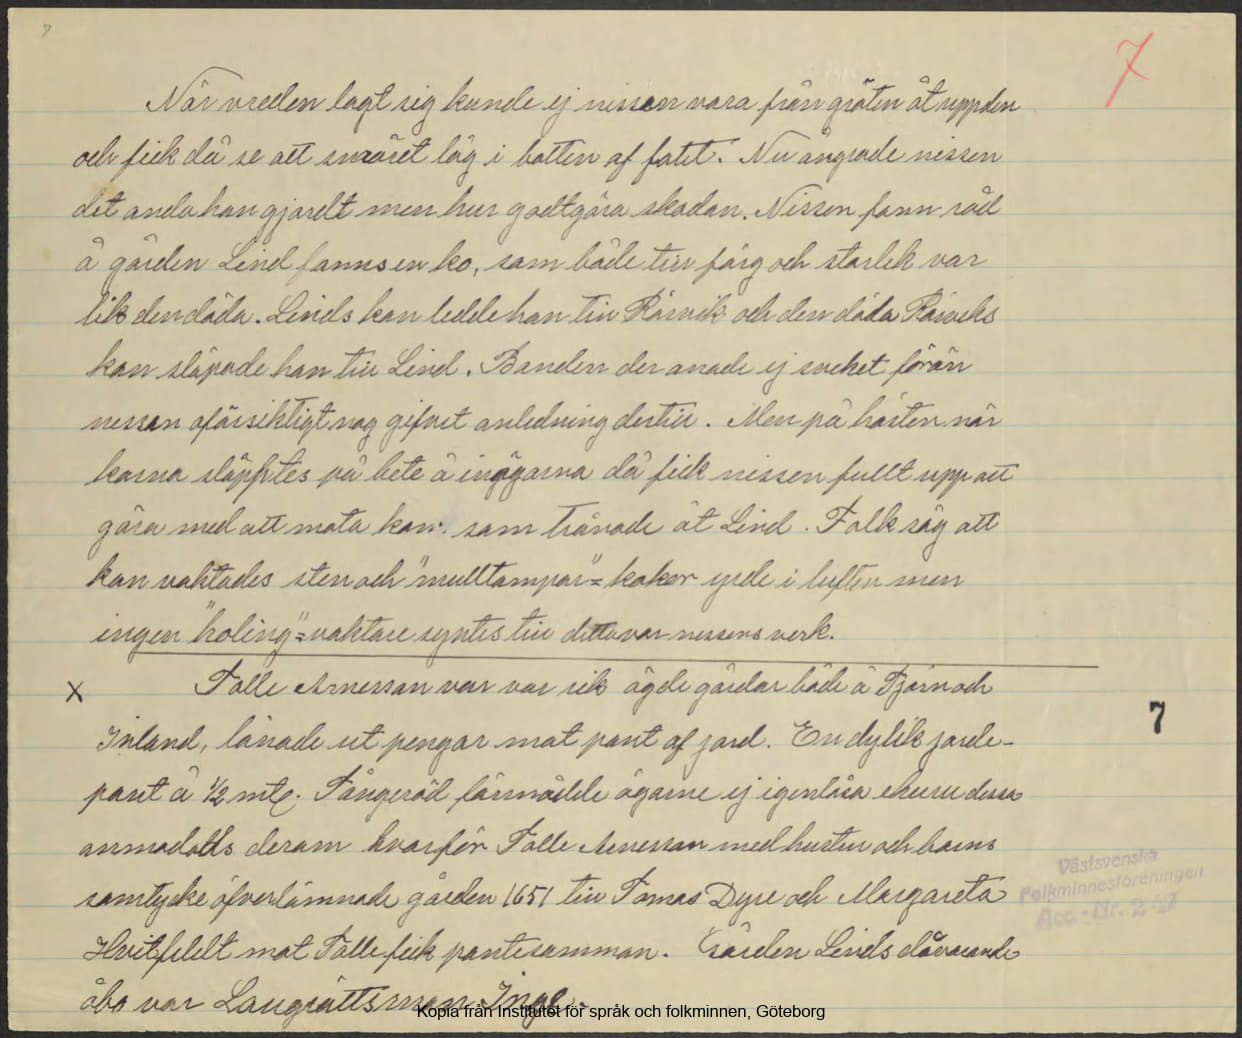 7
När vreden lagt sig kunde ej nissen vara från gröten åt upp den
och fick då se att smöret låg i botten af fatet. Nu ångrade nissen
det onda han gjordt men hur godtgöra skadan. Nissen fann råd
å gården Lind fanns en ko, som både till färg och storlek var
lik den döda. Linds kon ledde han till Rörvik och den döda Rörviks
kon släpade han till Lind. Bonden der anade ej sveket förän
nissen oförsiktigt nog gifvet anledning dertill. Men på hösten när
korna släpptes på bete å inägorna då fick nissen fullt upp att
göra med att mota kon som trånade åt Lind. Folk såg att
kon vaktades sten och "mulltampar" = kokor yrde i luften men
ingen "holing" = vaktare syntes till detta var nissens verk.
x Tolle Arnesson var var rik ägde gårdar både å Tjörn och
Inland, lånade ut pengar mot pant af jord. En dylik jorde-
pant å 1/2 mtl. Tångeröd förmådde ägarne ej igenlösa ehuru dessa
anmodatts derom hvarför Tolle Arnesson med hustru och barns
samtycke öfverlämnade gården 1651 till Tomas Dyre och Margareta
Hvitfeldt mot Tolle fick pantesumman. Gården Linds dåvarande
åbo var Laugrättsman Inge.
7
Västsvenska
Folkminnesföreningen
Acc.-Nr. 247
Kopia från Institutet för språk och folkminnen, Göteborg